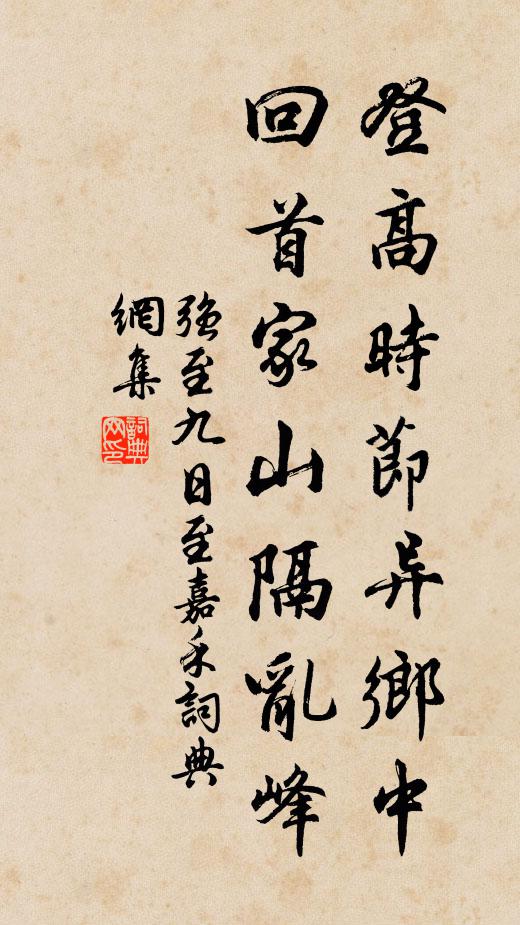 登高時節异鄉中
回首家山隔亂峰
强至九日至嘉禾詞典
網集
詞典
网印